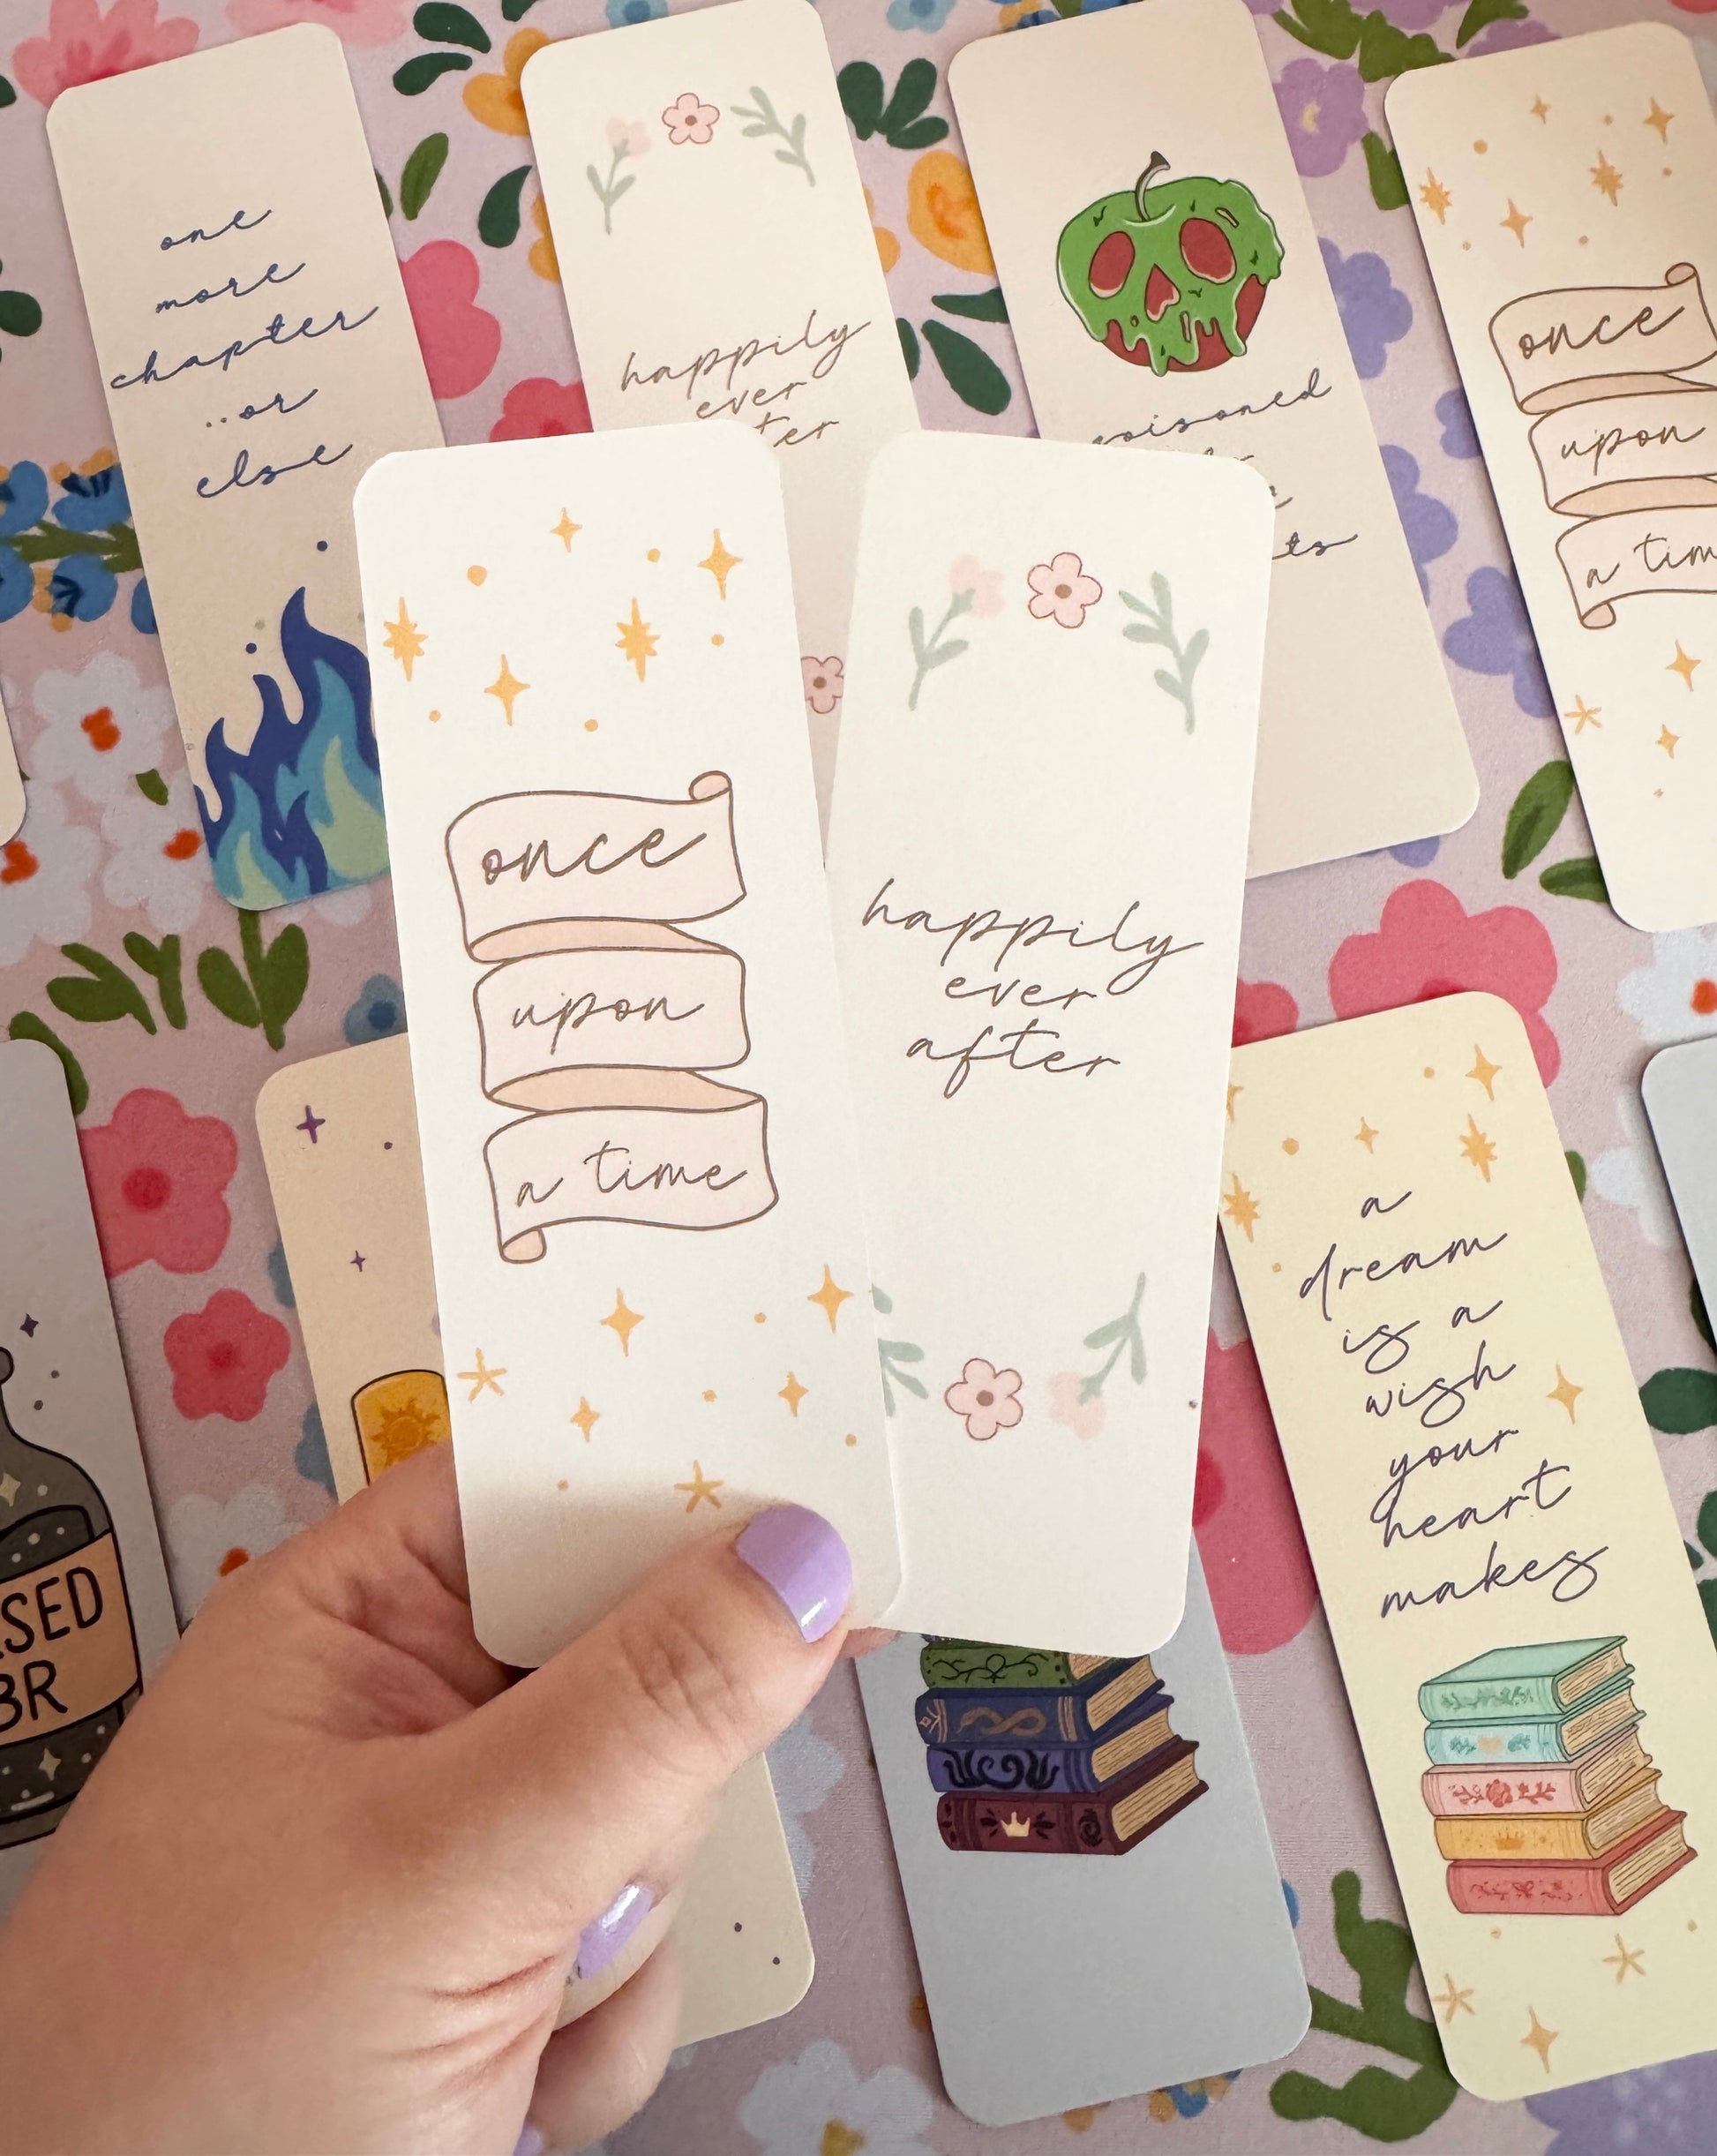 one
more
chapter
..or
else
happily
ever
poisoned
once
upon
once
upon
a time
happily
ever
after
a
dream
is a
wish
your
heart
makes